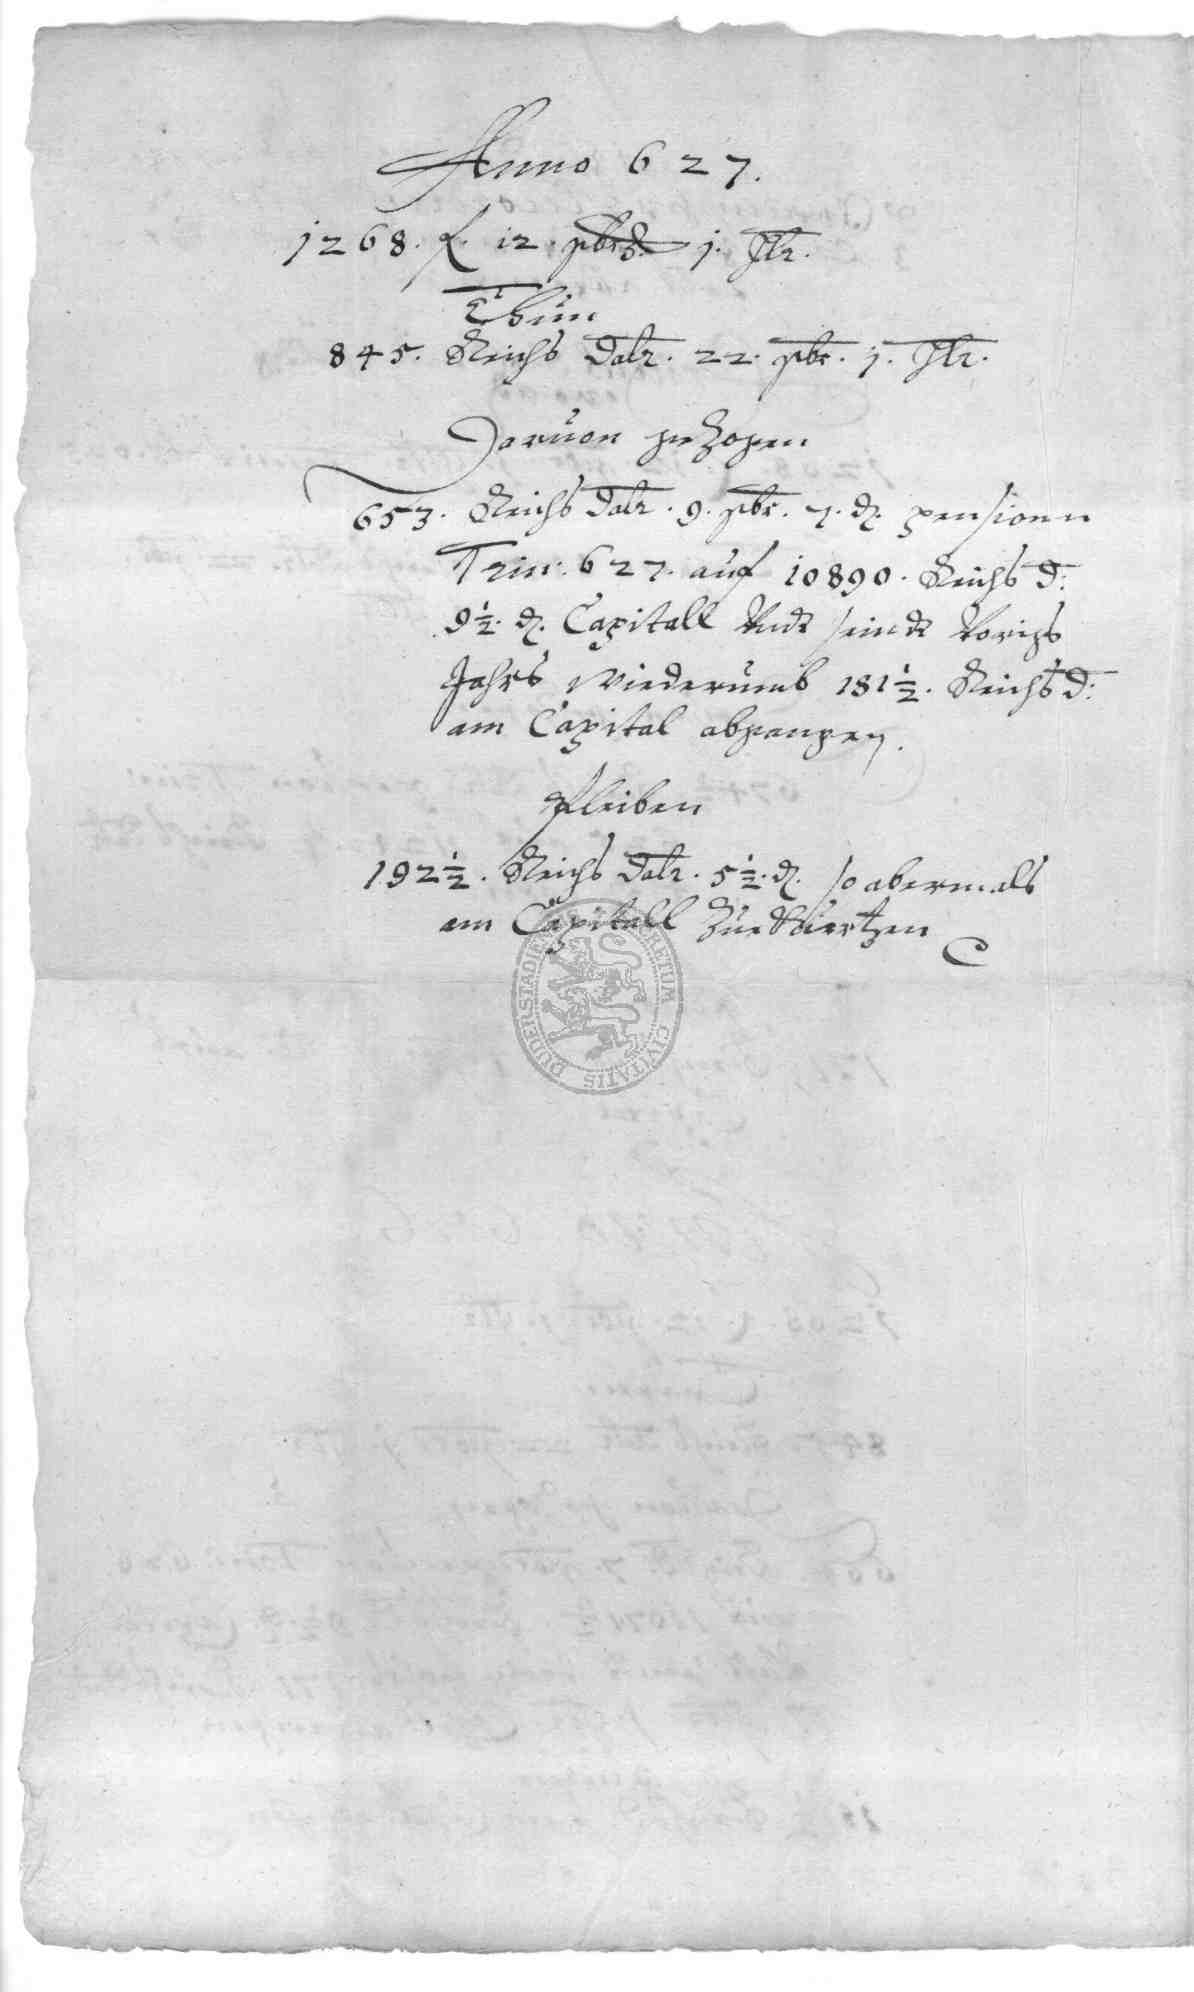 Anno 627.
1268. f. 12. gbr 1. Flr.
Thun
845. Reichs Dalr. 22. gbr. 1. Flr.
Daruon gezogen
653. Reichs Dalr. 9. gbr. 7. d. pensionn
Trin: 627. auf 10890. Reichs D:
9½. d. Capitall Undt seindt Voriges
Jahrs Wiederumb 181½. Reichs D:
am Capital abgangen.
Pleiben
192½. Reichs Dalr. 5½. d. so abermals
am Capitall Zue Kürtzen
DUDERSTADIE SECRETUM CIVITATIS